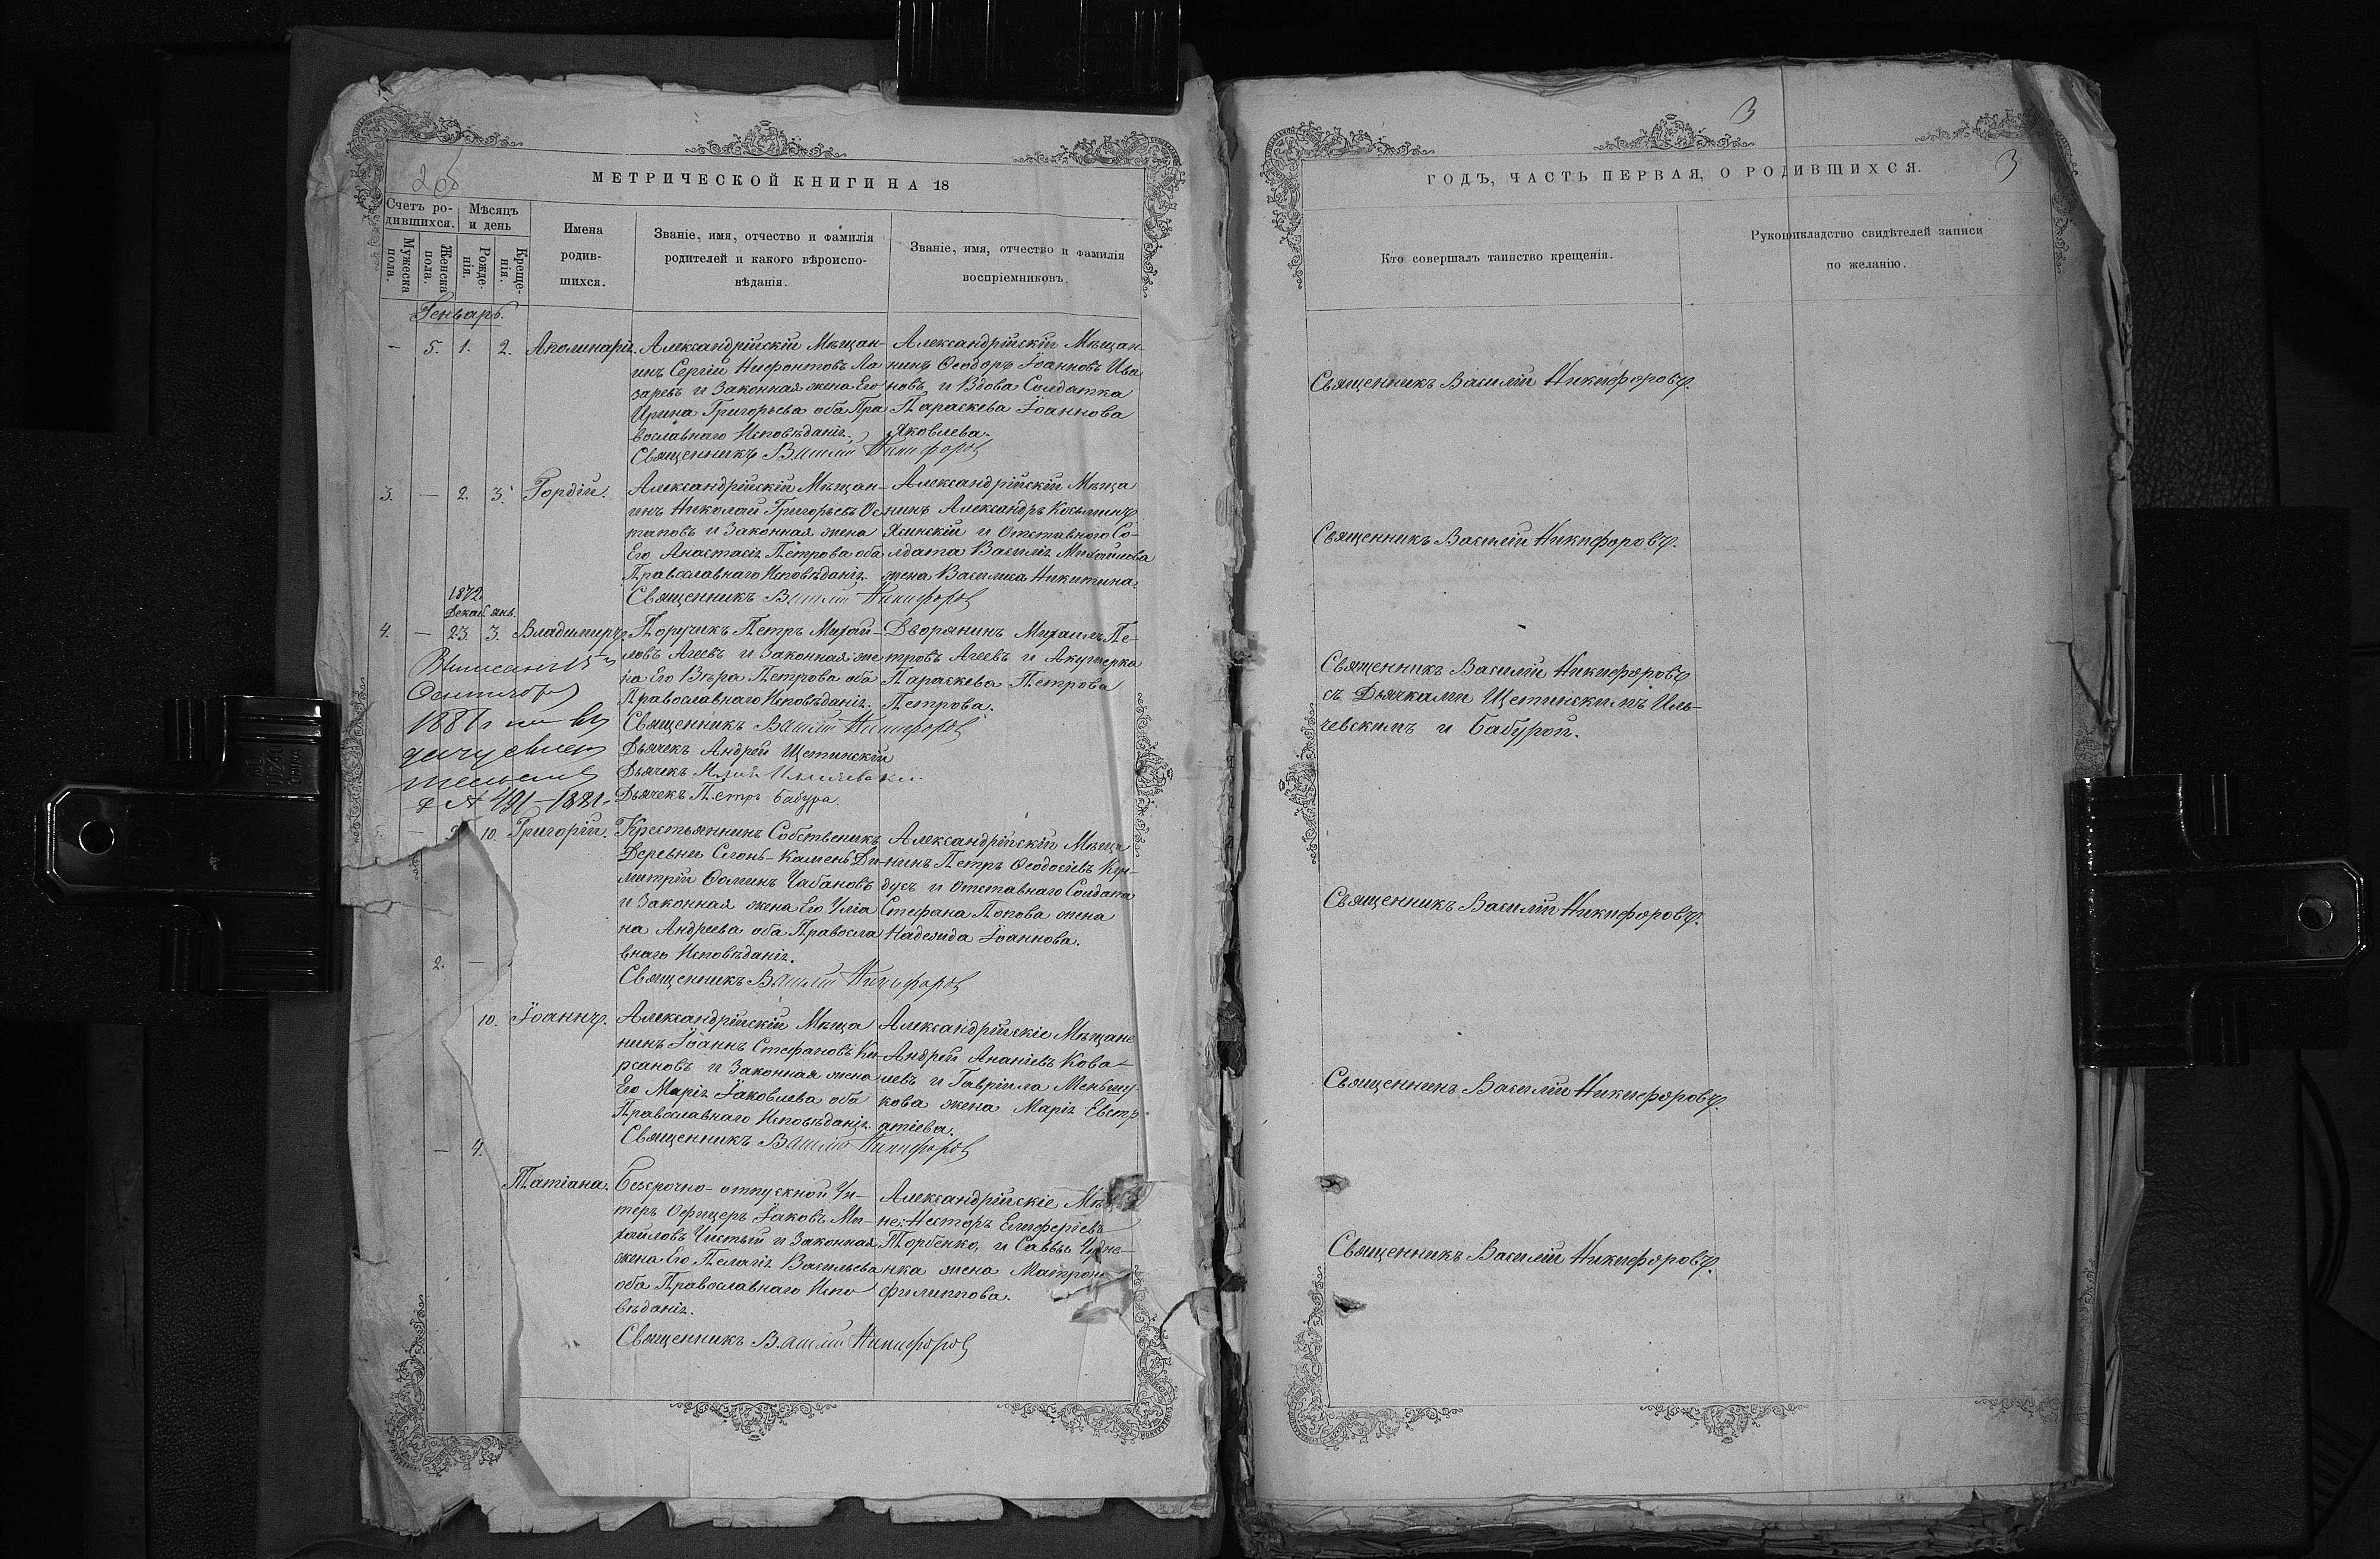 3
265
МЕТРИЧЕСКОЙ КНИГИ НА 18
Счетъ ро-
дившихся.
Мѣсяцъ
и день
Мужеска
пола.
Женска
пола.
Рожде-
нія.
Креще-
нія.
Имена
родив-
шихся.
Званіе, имя, отчество и фамилія
родителей и какого вѣроиспо-
вѣданія.
Званіе, имя, отчество и фамилія
воспріемниковъ.
Генварь.
— 5. 1. 2. Аполинарія.
Александрійскій Мѣщан-
инъ Сергій Нифонтовъ Ла
заревъ и Законная жена Его
Ирина Григорьева оба Пра
вославнаго Исповѣданія.
Священникъ Василій Никифоровъ
Александрійскій Мѣщан-
нинъ Ѳеодоръ Іоанновъ Ива
новъ, и Вдова Солдатка
Параскева Іоаннова
Яковлева.
3. — 2. 3. Гордій.
Александрійскій Мѣщан-
инъ Николай Григорьевъ Ос
таповъ и Законная жена
Его Анастасія Петрова оба
Православнаго Исповѣданія.
Священникъ Василій Никифоровъ
Александрійскій Мѣща
нинъ Александръ Косьминъ
и Отставного Со-
лдата Василія Михайлова
жена Василиса Никитина.
1872.
Декаб. янв.
4. — 23. 3. Владимиръ.
Поручикъ Петръ Михай-
ловъ Агеевъ и Законная же
на Его Вѣра Петрова оба
Православнаго Исповѣданія.
Священникъ Василій Никифоровъ
Дьячекъ Андрей Щетинскій
Дьячекъ
Дьячекъ Петръ Бабура.
Дворянинъ Михаилъ Пе-
тровъ Агеевъ и Акушерка
Параскева Петрова
Петрова.
1881
№ 491 — 1881.
— 10. Григорій.
Крестьянинъ Собственникъ
Деревни Слонь-Камень Ди-
митрій Ѳоминъ Чабановъ
и Законная жена Его Улiа
на Андреева оба Правосла
внаго Исповѣданія.
Священникъ Василій Никифоровъ
Александрійскій Мѣща
нинъ Петръ Ѳеодосіевъ Кун-
дусъ и Отставнаго Солдата
Стефана Попова жена
Надежда Іоаннова.
2. —
10. Іоаннъ.
Александрійскій Мѣща
нинъ Іоаннъ Стефановъ Ки-
рсановъ и Законная жена
Его Марія Іаковлева оба
Православнаго Исповѣданія.
Священникъ Василій Никифоровъ
Александрійскіе Мѣщане
Андрей Ананіевъ Кова-
левъ и Гавріила Меньшу-
кова жена Марія Евстр
атіева.
— 4.
Татіана.
Безсрочно-отпускной Ун-
теръ Офицеръ Іаковъ Ми-
хайловъ Чистый и Законная
жена Его Пелагія Васильева
оба Православнаго Испо
вѣданія.
Священникъ Василій Никифоровъ
Александрійскіе
не: Несторъ Елиферіевъ
Торбенко, и Саввы
нка жена Матрона
Филиппова.
3
ГОДЪ, ЧАСТЬ ПЕРВАЯ, О РОДИВШИХСЯ.
Кто совершалъ таинство крещенія.
Рукоприкладство свидѣтелей записи
по желанію.
Священникъ Василій Никифоровъ.
Священникъ Василій Никифоровъ.
Священникъ Василій Никифоровъ
съ Дьячками Щетинскимъ Иль-
чевскимъ и Бабурой.
Священникъ Василій Никифоровъ.
Священникъ Василій Никифоровъ.
Священникъ Василій Никифоровъ.